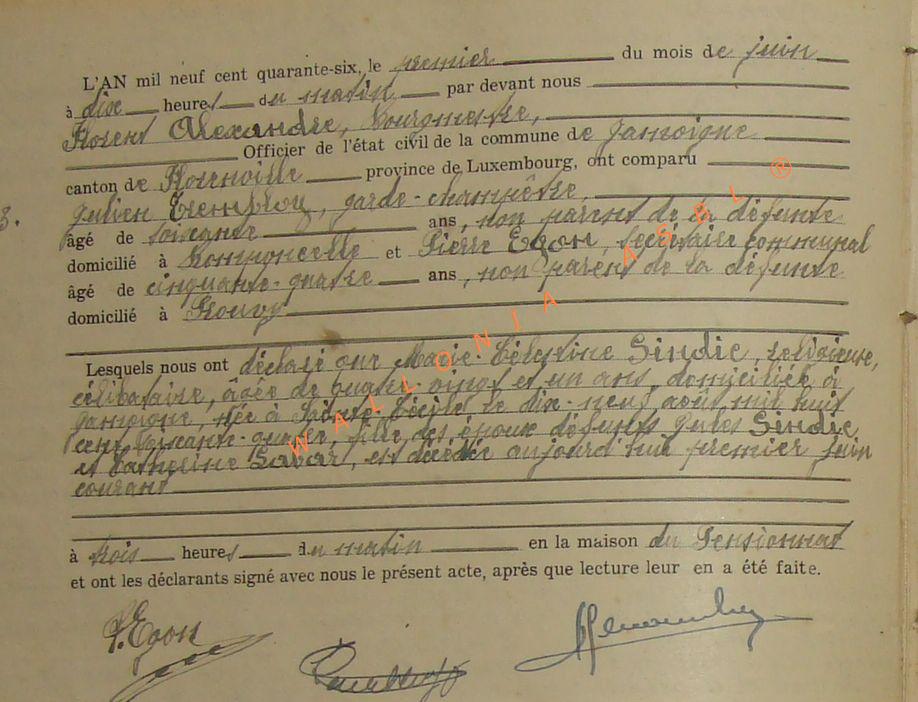 L'AN mil neuf cent quarante-six, le premier du mois de juin
à dix heures du matin par devant nous
Florent Alexandre, bourgmestre,
Officier de l'état civil de la commune de Jamoigne
canton de Florenville province de Luxembourg, ont comparu
3.
Julien, garde-champêtre,
âgé de soixante ans, non parent de la défunte
domicilié à Romponcelle et Pierre Egon, secrétaire communal
âgé de cinquante-quatre ans, non parent de la défunte
domicilié à Prouvy
Lesquels nous ont déclaré que Marie-Célestine Sindic, religieuse,
célibataire, âgée de quatre-vingt et un ans, domiciliée à
Jamoigne, née à Sainte-Cécile le dix-neuf août mil huit
cent soixante-quatre, fille des époux défunts Jules Sindic
et Catherine Savar, est décédée aujourd'hui premier juin
courant
à trois heures du matin en la maison du Pensionnat
et ont les déclarants signé avec nous le présent acte, après que lecture leur en a été faite.
P. Egon
WALLONIA ASBL ®